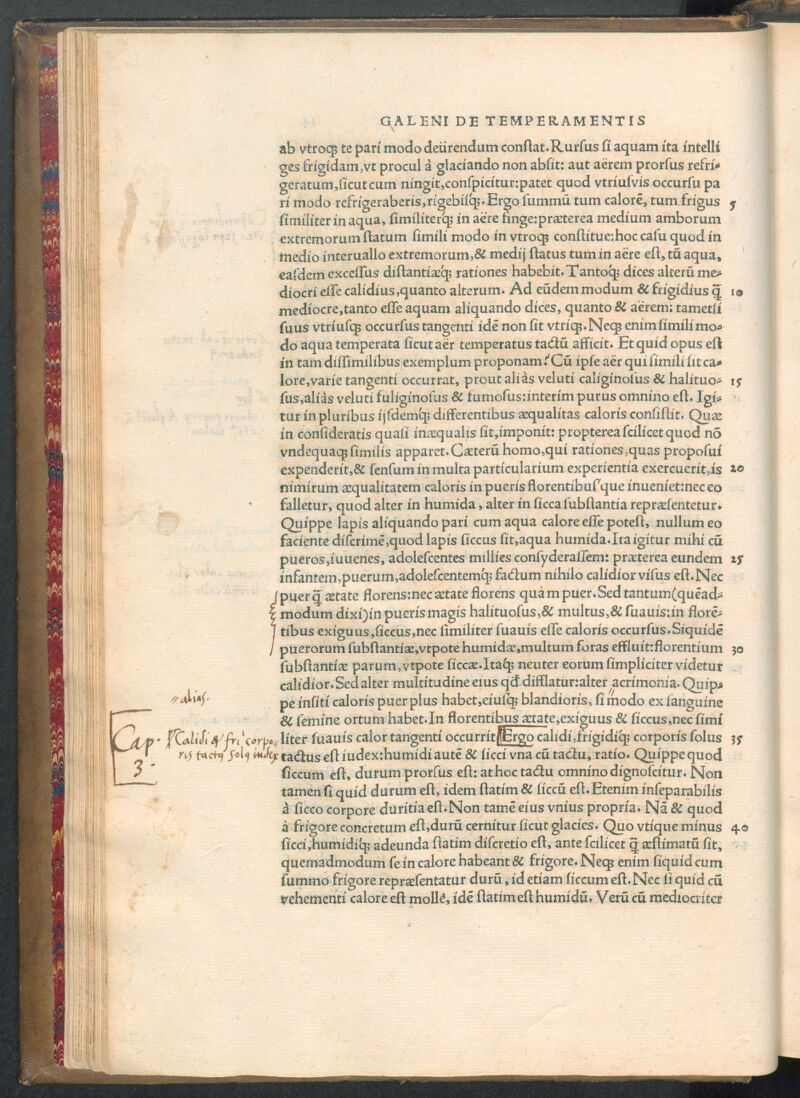 GALENI DE TEMPERAMENTIS
ab vtroq; te pari modo deürendum conſtat. Rurſus ſi aquam ita intelli
ges frigidam, vt procul à glaciando non abſit: aut aërem prorſus refri-
geratum, ſicut cum ningit, conſpicitur: patet quod vtriuſvis occurſu pa
ri modo refrigeraberis, rigebiſq;. Ergo ſummū tum calorē, tum frigus 5
ſimiliter in aqua, ſimiliterq; in aëre finge: præterea medium amborum
extremorum ſtatum ſimili modo in vtroq; conſtitue: hoc caſu quod in
medio interuallo extremorum, & medij ſtatus tum in aëre eſt, tū aqua,
eaſdem exceſſus diſtantiæq; rationes habebit. Tantoq; dices alterū me-
diocri eſſe calidius, quanto alterum. Ad eūdem modum & frigidius q̄ 10
mediocre, tanto eſſe aquam aliquando dices, quanto & aërem: tametſi
ſuus vtriuſq; occurſus tangenti idē non ſit vtriq;. Neq; enim ſimili mo-
do aqua temperata ſicut aër temperatus tactū afficit. Et quid opus eſt
in tam diſſimilibus exemplum proponam? Cū ipſe aër qui ſimili ſit ca-
lore, varie tangenti occurrat, prout aliàs veluti caliginoſus & halituo- 15
ſus, aliàs veluti fuliginoſus & fumoſus: interim purus omnino eſt. Igi-
tur in pluribus ijſdemq; differentibus æqualitas caloris conſiſtit. Quæ
in conſideratis quaſi inæqualis ſit, imponit: propterea ſcilicet quod nō
vndequaq; ſimilis apparet. Cæterū homo, qui rationes, quas propoſui
expenderit, & ſenſum in multa particularium experientia exercuerit, is 20
nimirum æqualitatem caloris in pueris florentibuſque inueniet: nec eo
falletur, quod alter in humida, alter in ſicca ſubſtantia repræſentetur.
Quippe lapis aliquando pari cum aqua calore eſſe poteſt, nullum eo
faciente diſcrimē, quod lapis ſiccus ſit, aqua humida. Ita igitur mihi cū
pueros, iuuenes, adoleſcentes millies conſyderaſſem: præterea eundem 25
infantem, puerum, adoleſcentemq; factum nihilo calidior viſus eſt. Nec
puer q̄ ætate florens: nec ætate florens quàm puer. Sed tantum (quēad-
modum dixi) in pueris magis halituoſus, & multus, & ſuauis: in florē-
tibus exiguus, ſiccus, nec ſimiliter ſuauis eſſe caloris occurſus. Siquidē
puerorum ſubſtantiæ, vtpote humidæ, multum foras effluit: florentium 30
ſubſtantiæ parum, vtpote ſiccæ. Itaq; neuter eorum ſimpliciter videtur
calidior. Sed alter multitudine eius qd̄ difflatur: alter acrimonia. Quip-
pe inſiti caloris puer plus habet, eiuſq; blandioris, ſi modo ex ſanguine
// alias.
& ſemine ortum habet. In florentibus ætate, exiguus & ſiccus, nec ſimi
Cap. 3.
Calidi & fri' corpo//
ris tactus solus index
liter ſuauis calor tangenti occurrit. Ergo calidi, frigidiq; corporis ſolus 35
tactus eſt iudex: humidi autē & ſicci vna cū tactu, ratio. Quippe quod
ſiccum eſt, durum prorſus eſt: at hoc tactu omnino dignoſcitur. Non
tamen ſi quid durum eſt, idem ſtatim & ſiccū eſt. Etenim inſeparabilis
à ſicco corpore duritia eſt. Non tamē eius vnius propria. Nā & quod
à frigore concretum eſt, durū cernitur ſicut glacies. Quo vtique minus 40
ſicci, humidiq; adeunda ſtatim diſcretio eſt, ante ſcilicet q̄ æſtimatū ſit,
quemadmodum ſe in calore habeant & frigore. Neq; enim ſiquid cum
ſummo frigore repræſentatur durū, id etiam ſiccum eſt. Nec ſi quid cū
vehementi calore eſt mollé, idē ſtatim eſt humidū. Verū cū mediocriter